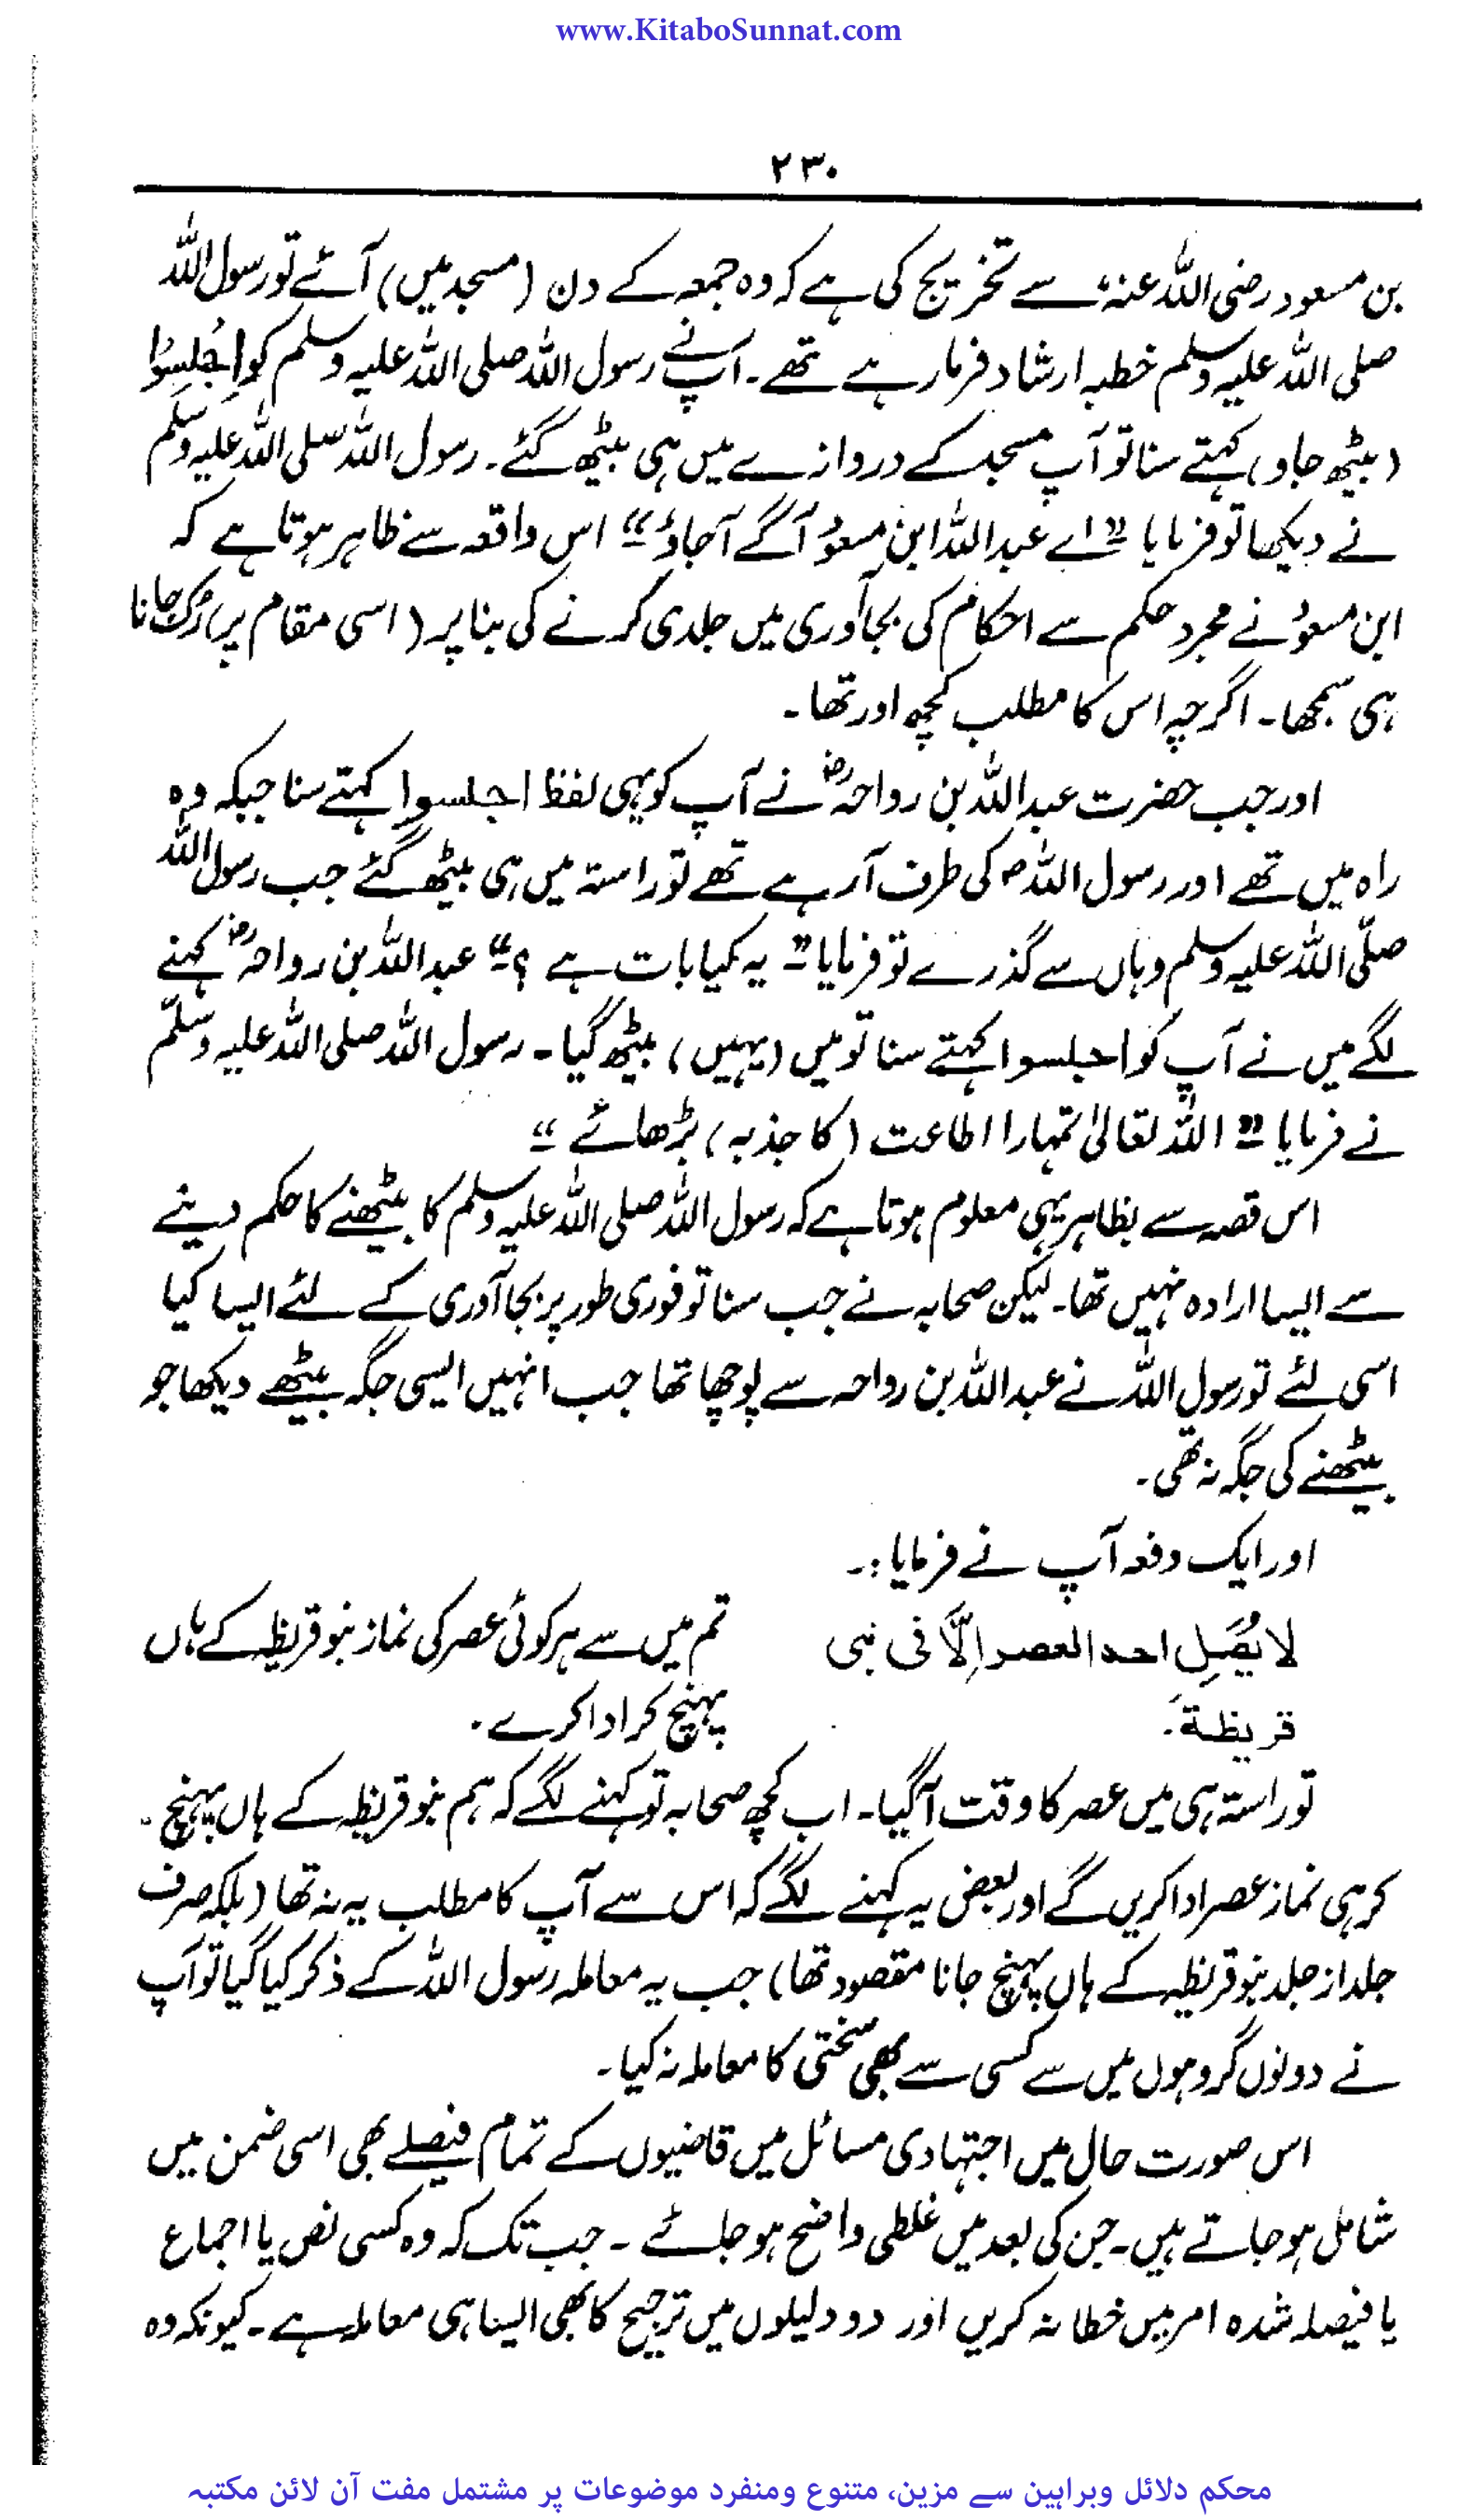 www.KitaboSunnat.com
۲۳۰
بن مسعود رضی اللہ عنہ، سے تخریج کی ہے کہ وہ جمعہ کے دن (مسجد میں) آئے تو رسول اللہ
صلی اللہ علیہ وسلم خطبہ ارشاد فرما رہے تھے۔ آپ نے رسول اللہ صلی اللہ علیہ وسلم کو اِجْلِسُوْا
(بیٹھ جاو) کہتے سنا تو آپ مسجد کے دروازے میں ہی بیٹھ گئے۔ رسول اللہ صلی اللہ علیہ وسلم
نے دیکھا تو فرمایا "اے عبد اللہ ابن مسعودؓ آگے آجاؤ" اس واقعہ سے ظاہر ہوتا ہے کہ
ابن مسعودؓ نے مجرد حکم سے احکام کی بجاآوری میں جلدی کرنے کی بنا پر (اسی مقام پر) رک جانا
ہی سمجھا۔ اگرچہ اس کا مطلب کچھ اور تھا۔
اور جب حضرت عبد اللہ بن رواحہؓ نے آپ کو یہی لفظ اجلسوا کہتے سنا جبکہ وہ
راہ میں تھے اور رسول اللہؐ کی طرف آرہے تھے تو راستہ میں ہی بیٹھ گئے جب رسول اللہ
صلّی اللہ علیہ وسلم وہاں سے گذرے تو فرمایا " یہ کیا بات ہے ؟" عبد اللہ بن رواحہؓ کہنے
لگے میں نے آپ کو اجلسوا کہتے سنا تو میں (یہیں) بیٹھ گیا۔ رسول اللہ صلی اللہ علیہ وسلّم
نے فرمایا " اللہ تعالیٰ تمہارا اطاعت (کا جذبہ) بڑھائے "
اس قصہ سے بظاہر یہی معلوم ہوتا ہے کہ رسول اللہ صلی اللہ علیہ وسلم کا بیٹھنے کا حکم دینے
سے ایسا ارادہ نہیں تھا۔ لیکن صحابہ نے جب سنا تو فوری طور پر بجا آوری کے لئے ایسا کیا
اسی لئے تو رسول اللہ نے عبد اللہ بن رواحہ سے پوچھا تھا جب انہیں ایسی جگہ بیٹھے دیکھا جو
بیٹھنے کی جگہ نہ تھی۔
اور ایک دفعہ آپ نے فرمایا:۔
لا یُصَلِّ احد العصر اِلَّا فی بنی
قریظۃَ۔
تم میں سے ہر کوئی عصر کی نماز بنو قریظہ کے ہاں
پہنچ کر ادا کرے۔
تو راستہ ہی میں عصر کا وقت آگیا۔ اب کچھ صحابہ تو کہنے لگے کہ ہم بنو قریظہ کے ہاں پہنچ
کر ہی نماز عصر ادا کریں گے اور بعض یہ کہنے لگے کہ اس سے آپ کا مطلب یہ نہ تھا (بلکہ صرف
جلد از جلد بنو قریظہ کے ہاں پہنچ جانا مقصود تھا) جب یہ معاملہ رسول اللہ کے ذکر کیا گیا تو آپ
نے دونوں گروہوں میں سے کسی سے بھی سختی کا معاملہ نہ کیا۔
اس صورت حال میں اجتہادی مسائل میں قاضیوں کے تمام فیصلے بھی اسی ضمن میں
شامل ہو جاتے ہیں۔ جن کی بعد میں غلطی واضح ہو جائے ۔ جب تک کہ وہ کسی نص یا اجماع
یا فیصلہ شدہ امر میں خطا نہ کریں اور دو دلیلوں میں ترجیح کا بھی ایسا ہی معاملہ ہے۔ کیونکہ وہ
محکم دلائل وبراہین سے مزین، متنوع ومنفرد موضوعات پر مشتمل مفت آن لائن مکتبہ